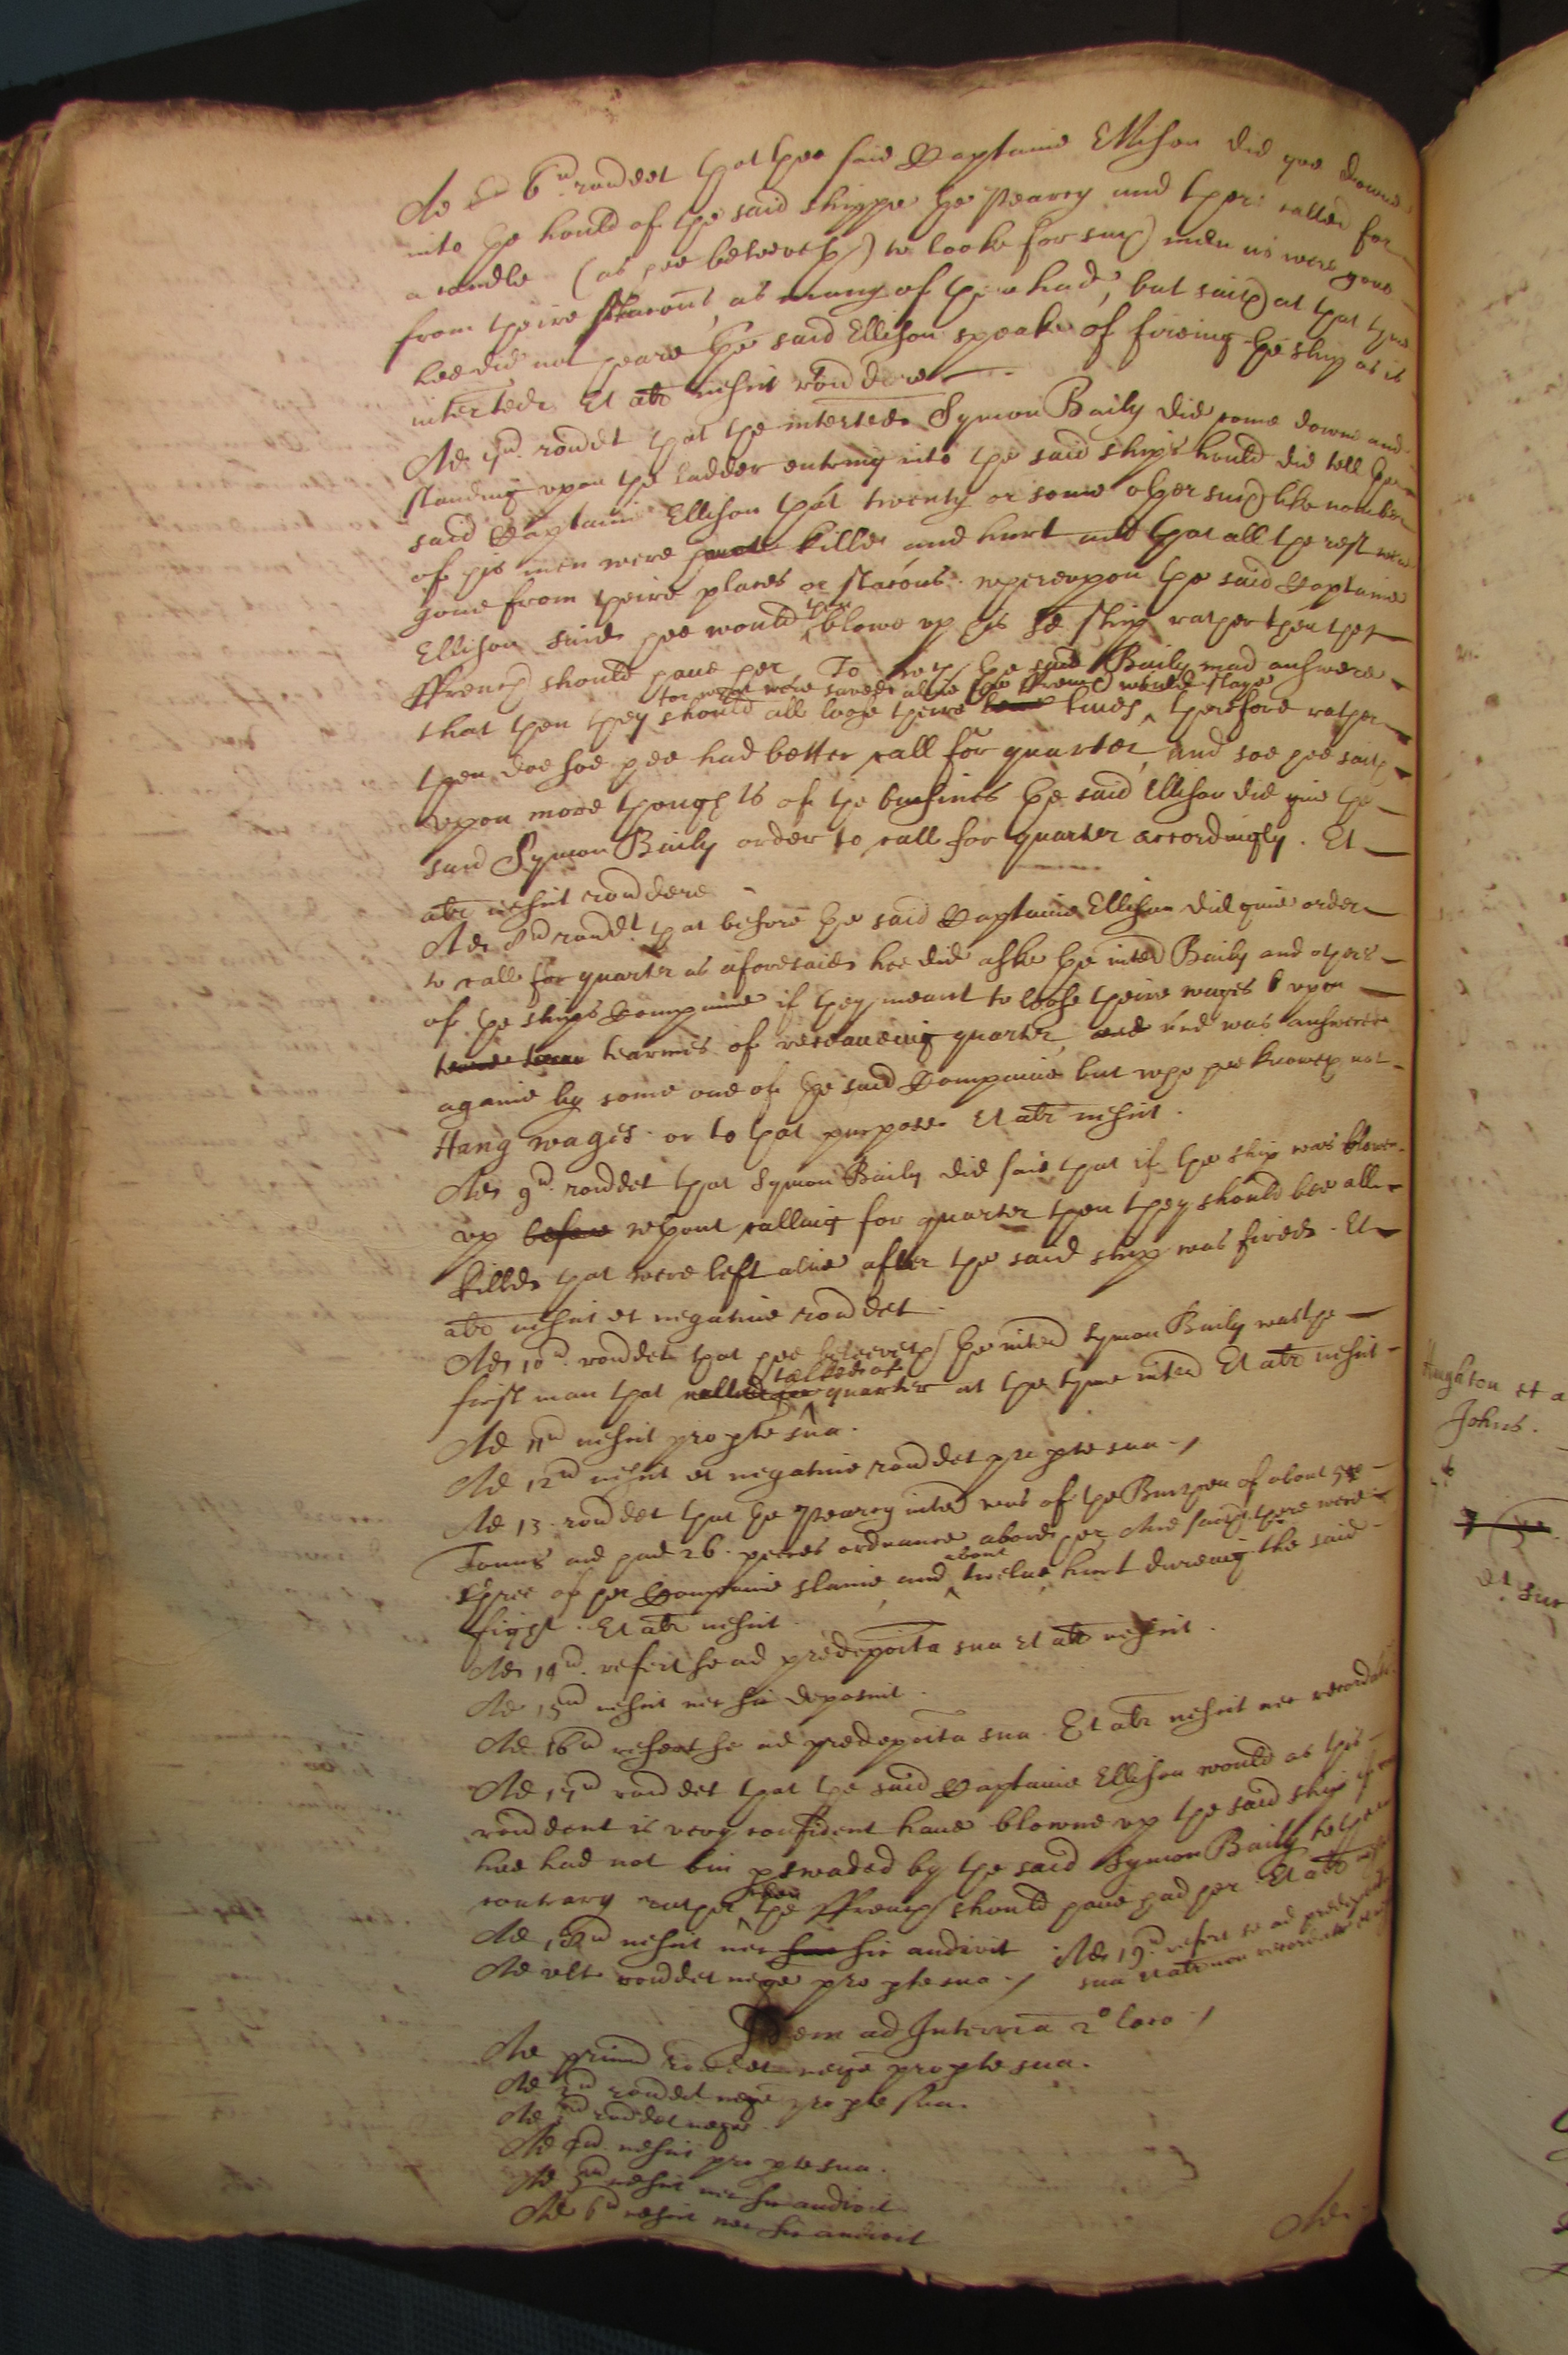 Ad 6ᵘ rondet that hee said Captaine Ellison did goe downe
into the hould of the said shippe the Pearcy and there called for
a candle (as hee beleeveth) to looke for such men as were gone
from theire stacons, as many of them had, but saith at that tyme
hee did not heare the said Ellison speake of fireing the ship as is
interted Et alr nescit rondere
Ad 7ᵘ rondet that the interted Symon Baily did come downe and
standing upon the ladder entring into the said ships hould did tell the
said Captaine Ellison that twenty or some other such like number
of his men were killed and hurt and that all the rest were
gone from theire places or stacons. whereupon the said Captaine
Ellison said hee would then blowe up his the ship rather then the
ffrench should have her To wch the said Baily mad answere
for what were saved alive the ffrench would slaye
that then they should all loose theire lives, therefore rather
then doe soe hee had better call for quarter, and soe hee saith
upon more thoughts of the businies the said Ellison did give the
said Symon Baily order to call for quarter accordingly. Et
alr nescit rondere
Ad 8ᵘ rondet that before the said Captaine Ellison did give order
to call for quarter as aforesaid hee did aske the inted Baily and others
of the ships Companie if they meant to loose theire wages upon
tearmes of receaveing quarter, and was answered
againe by some one of the said Companie but who hee knoweth not
Hang wages. or to that purpose Et alr nescit.
Ad 9ᵘ rondet that Symon Baily did saie that if the ship was blowen
up before wthout calling for quarter then they should bee all
killed that were left alive after the said ship was fired. Et
alr nescit et negative rondet
Ad 10ᵘ rondet that hee beleeveth the inted Symon Baily was the
talked of
first man that called for quarter at the tyme inted Et alr nescit
Ad 11ᵘ nescit pro pte sua.
Ad 12ᵘ nescit et negative rondet pro pte sua
Ad 13 rondet that the Pearcy inted was of the Burthen of about
Tonns and had 26. peeces ordnance aboard her And saith there were
three of her Companie slaine, and about twelve hurt dureing the said
fight. Et alr nescit
Ad 14ᵘ. refert se ad predeposita sua Et alr nescit.
Ad 15ᵘ nescit nec sic deposuit.
Ad 16ᵘ refert se ad predeposita sua. Et alr nescit nec recordatur
Ad 17ᵘ rondet that the said Captaine Ellison would as this
rondent is very confident have blowne up the said ship if
hee had not bin pswaded by the said Symon Baily to the
contrary rather then the ffrench should have had her Et alr
Ad 18ᵘ nescit nec sic audivit Ad 19ᵘ refert se ad predeposita
Ad ult rondet nege pro pte sua sua et alr non recordatur
Idem ad Interria 2º loco
Ad primu rondet nege pro pte sua.
Ad 2ᵘ rondet nege pro pte sua.
Ad 3ᵘ rondet nege
Ad 4ᵘ nescit pro pte sua.
Ad 5ᵘ nescit nec sic audivit
Ad 6ᵘ nescit nec sic audivit
Ad
Johns.